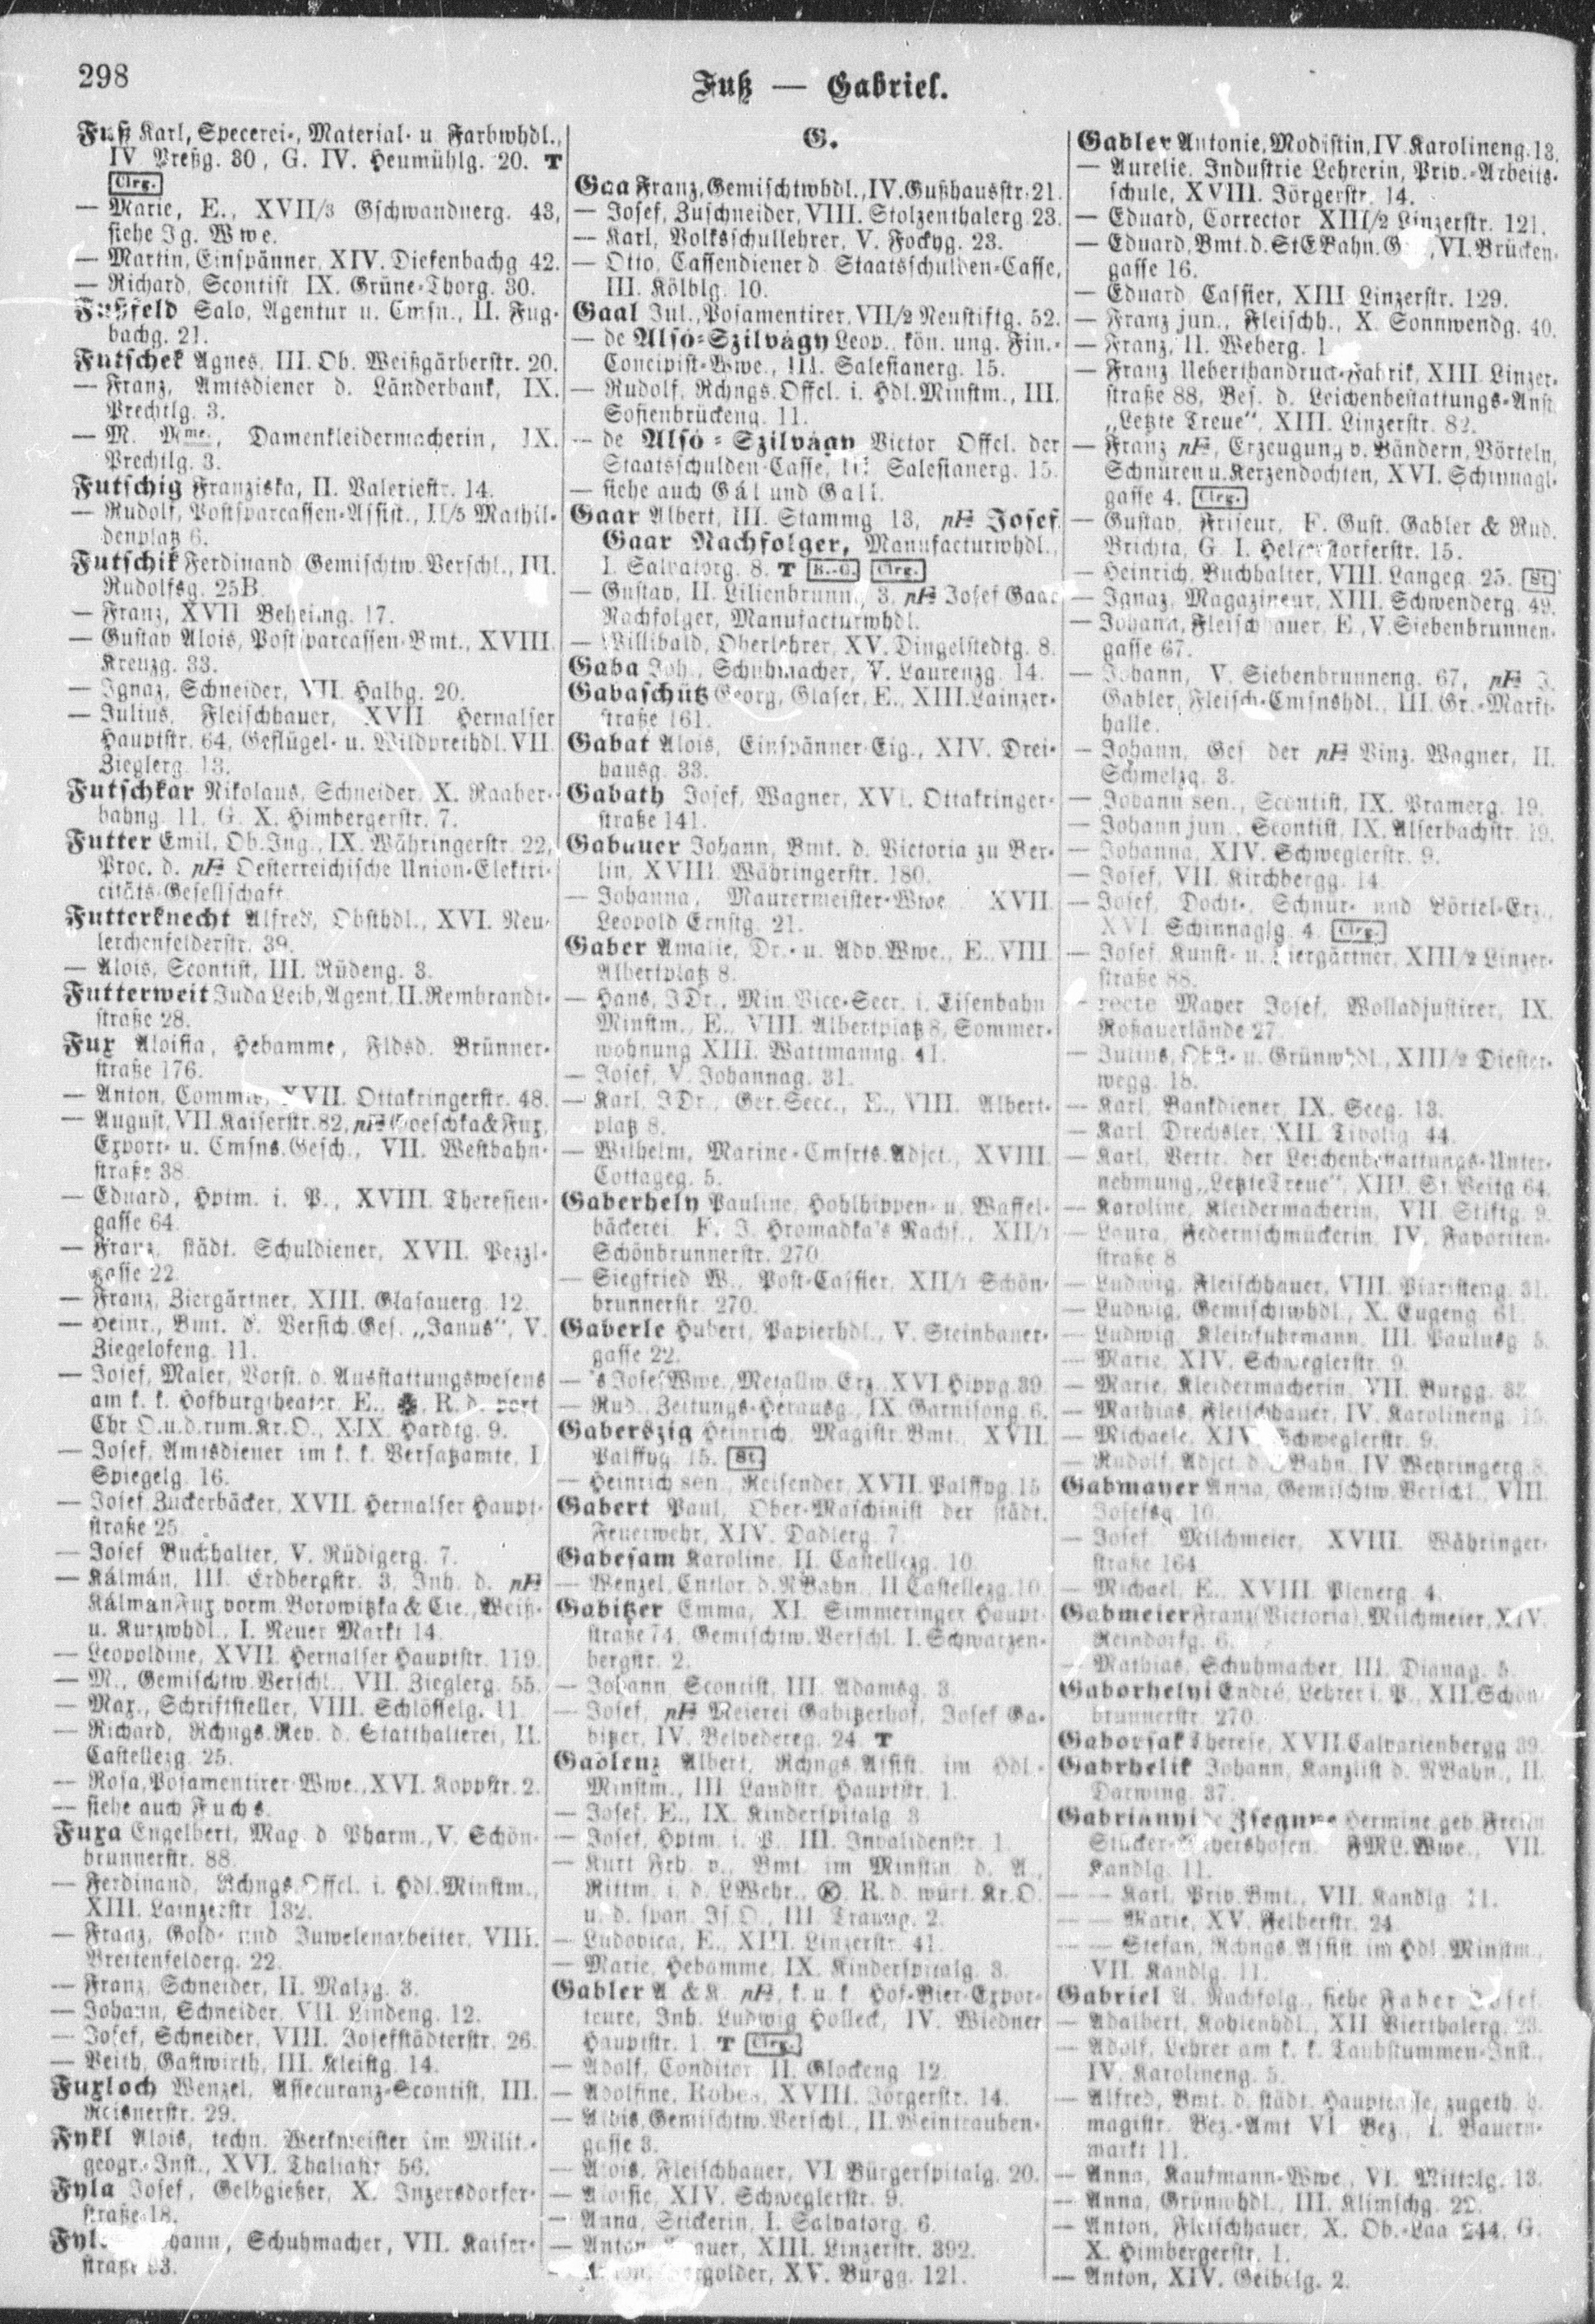 298
Fuß — Gabriel.
Fuß Karl, Specerei-, Material- u. Farbwhdl.,
IV. Preßg. 30, G. IV. Heumühlg. 20. T
Clrg.
— Marie, E., XVII/3 Gschwandnerg. 43,
siehe Ig. Wwe.
— Martin, Einspänner, XIV. Diefenbachg 42.
— Richard, Scontist, IX. Grüne-Thorg. 30.
Fußfeld Salo, Agentur u. Cmsn., II. Fug-
bachg. 21.
Futschek Agnes, III. Ob. Weißgärberstr. 20.
— Franz, Amtsdiener d. Länderbank, IX.
Prechtlg. 3.
— M. Mme., Damenkleidermacherin, IX.
Prechtlg. 3.
Futschig Franziska, II. Valeriestr. 14.
— Rudolf, Postsparcassen-Assist., II/5 Mathil-
denplatz 6.
Futschik Ferdinand Gemischtw. Verschl., III.
Rudolfsg. 25B.
— Franz, XVII Beheimg. 17.
— Gustav Alois, Postsparcassen-Bmt., XVIII.
Kreuzg. 33.
— Ignaz, Schneider, VII. Halbg. 20.
— Julius, Fleischhauer, XVII. Hernalser
Hauptstr. 64, Geflügel- u. Wildprethdl. VII.
Zieglerg. 13.
Futschkar Nikolaus, Schneider, X. Raaber-
bahng. 11, G. X. Himbergerstr. 7.
Futter Emil, Ob. Ing., IX. Währingerstr. 22,
Proc. d. pF Oesterreichische Union-Elektri-
citäts-Gesellschaft.
Futterknecht Alfred, Obsthdl., XVI. Neu-
lerchenfelderstr. 39.
— Alois, Scontist, III. Rüdeng. 3.
Futterweit Juda Leib, Agent, II. Rembrandt-
straße 28.
Fux Aloisia, Hebamme, Fldsd. Brünner-
straße 176.
— Anton, XVII. Ottakringerstr. 48.
— August, VII. Kaiserstr. 82, pF Goeschka & Fux,
Export- u. Cmsns. Gesch., VII. Westbahn-
straße 38.
— Eduard, Hptm. i. P., XVIII. Theresien-
gasse 64.
— Franz, städt. Schuldiener, XVII. Pezzl-
gasse 22.
— Franz, Ziergärtner, XIII. Glasauerg. 12.
— Heinr., Bmt. d. Versich. Ges. „Janus“, V.
Ziegelofeng. 11.
— Josef, Maler, Vorst. d. Ausstattungswesens
am k. k. Hofburgtheater, E., R. d. port.
Chr. O. u. d. rum. Kr. O., XIX. Hardtg. 9.
— Josef, Amtsdiener im k. k. Versatzamte, I.
Spiegelg. 16.
— Josef Zuckerbäcker, XVII. Hernalser Haupt-
straße 25.
— Josef Buchhalter, V. Rüdigerg. 7.
— Kálmán, III. Erdbergstr. 3, Inh. d. pF
Kálmán Fux vorm. Borowitzka & Cie., Weiß-
u. Kurzwhdl., I. Neuer Markt 14.
— Leopoldine, XVII. Hernalser Hauptstr. 119.
— M., Gemischtw. Verschl., VII. Zieglerg. 55.
— Max., Schriftsteller, VIII. Schlösselg. 11.
— Richard, Rchngs. Rev. d. Statthalterei, II.
Castellezg. 25.
— Rosa, Posamentirer-Wwe., XVI. Koppstr. 2.
— siehe auch Fuchs.
Fuxa Engelbert, Mag. d. Pharm., V. Schön-
brunnerstr. 88.
— Ferdinand, Rchngs. Offcl. i. Hdl. Minstm.,
XIII. Lainzerstr. 132.
— Franz, Gold- und Juwelenarbeiter, VIII.
Breitenfelderg. 22.
— Franz, Schneider, II. Malzg. 3.
— Johann, Schneider, VII. Lindeng. 12.
— Josef, Schneider, VIII. Josefstädterstr. 26.
— Veith, Gastwirth, III. Kleistg. 14.
Fuxloch Wenzel, Assecuranz-Scontist, III.
Reisnerstr. 29.
Fykl Alois, techn. Werkmeister im Milit.-
geogr. Inst., XVI. Thaliastr. 56.
Fyla Josef, Gelbgießer, X. Inzersdorfer-
straße 18.
Schuhmacher, VII. Kaiser-
straße 93.
G.
Gaa Franz, Gemischtwhdl., IV. Gußhausstr. 21.
— Josef, Zuschneider, VIII. Stolzenthalerg. 23.
— Karl, Volksschullehrer, V. Fockyg. 23.
— Otto, Cassendiener d. Staatsschulden-Casse,
III. Kölblg. 10.
Gaal Jul., Posamentirer, VII/2 Neustiftg. 52.
— de Alsó-Szilvágy Leop., kön. ung. Fin.-
Concipist-Wwe., III. Salesianerg. 15.
— Rudolf, Rchngs. Offcl. i. Hdl. Minstm., III.
Sofienbrückeng. 11.
— de Alsó-Szilvágy Victor, Offcl. der
Staatsschulden-Casse, III. Salesianerg. 15.
— siehe auch Gál und Gall.
Gaar Albert, III. Stammg 13, pF Josef
Gaar Nachfolger, Manufacturwhdl.,
I. Salvatorg. 8. T K.-C. Clrg.
— Gustav, II. Lilienbrunng. 3, pF Josef Gaar
Nachfolger, Manufacturwhdl.
— Willibald, Oberlehrer, XV. Dingelstedtg. 8.
Gaba Joh., Schuhmacher, V. Laurenzg. 14.
Gabaschütz Georg, Glaser, E., XIII. Lainzer-
straße 161.
Gabat Alois, Einspänner-Eig., XIV. Drei-
hausg. 33.
Gabath Josef, Wagner, XVI. Ottakringer-
straße 141.
Gabauer Johann, Bmt. d. Victoria zu Ber-
lin, XVIII. Währingerstr. 180.
— Johanna, Maurermeister-Wwe., XVII.
Leopold Ernstg. 21.
Gaber Amalie, Dr.- u. Adv. Wwe., E., VIII.
Albertplatz 8.
— Hans, JDr., Min. Vice-Secr. i. Eisenbahn
Minstm., E., VIII. Albertplatz 8, Sommer-
wohnung XIII. Wattmanng. 41.
— Josef, V. Johannag. 31.
— Karl, JDr., Ger. Secr., E., VIII. Albert-
platz 8.
— Wilhelm, Marine-Cmsrts. Adjct., XVIII.
Cottageg. 5.
Gaberhely Pauline, Hohlhippen- u. Waffel-
bäckerei, F. J. Hromadka's Nachf., XII/1
Schönbrunnerstr. 270.
— Siegfried W., Post-Cassier, XII/1 Schön-
brunnerstr. 270.
Gaberle Hubert, Papierhdl., V. Steinbauer-
gasse 22.
— 's Josef Wwe., Metallw. Erz., XVI. Hippg. 39.
— Rud., Zeitungs-Herausg., IX. Garnisong. 6.
Gaberszig Heinrich, Magistr. Bmt., XVII.
Palffyg. 15. St.
— Heinrich sen., Reisender, XVII. Palffyg. 15
Gabert Paul, Ober-Maschinist der städt.
Feuerwehr, XIV. Dadlerg. 7.
Gabesam Karoline, II. Castellezg. 10.
— Wenzel, Cntlor. d. NBahn, II Castellezg. 10.
Gabitzer Emma, XI. Simmeringer Haupt-
straße 74, Gemischtw. Verschl. I. Schwarzen-
bergstr. 2.
— Johann, Scontist, III. Adamsg. 3.
— Josef, pF Meierei Gabitzerhof, Josef Ga-
bitzer, IV. Belvedereg. 24. T
Gablenz Albert, Rchngs. Assist. im Hdl.-
Minstm., III. Landstr. Hauptstr. 1.
— Josef, E., IX. Kinderspitalg. 3.
— Josef, Hptm. i. P., III. Invalidenstr. 1.
— Kurt Frh. v., Bmt. im Minstm. d. A.,
Rittm. i. d. LWehr., R. d. würt. Kr. O.
u. d. span. Is. O., III. Traung. 2.
— Ludovica, E., XIII. Linzerstr. 41.
— Marie, Hebamme, IX. Kinderspitalg. 3.
Gabler A. & K. pF, k. u. k. Hof-Bier-Expor-
teure, Inh. Ludwig Holleck, IV. Wiedner
Hauptstr. 1. T Clrg.
— Adolf, Conditor, II. Glockeng. 12.
— Adolfine, Robes, XVIII. Jörgerstr. 14.
— Alois, Gemischtw. Verschl., II. Weintrauben-
gasse 3.
— Alois, Fleischhauer, VI. Bürgerspitalg. 20.
— Aloisie, XIV. Schweglerstr. 9.
— Anna, Stickerin, I. Salvatorg. 6.
— XIII. Linzerstr. 392.
XV. Burgg. 121.
Gabler Antonie, Modistin, IV. Karolineng. 13.
— Aurelie, Industrie Lehrerin, Priv.-Arbeits-
schule, XVIII. Jörgerstr. 14.
— Eduard, Corrector, XIII/2 Linzerstr. 121.
— Eduard, Bmt. d. StEBahn. VI. Brücken-
gasse 16.
— Eduard, Cassier, XIII. Linzerstr. 129.
— Franz jun., Fleischh., X. Sonnwendg. 40.
— Franz, II. Weberg. 1
— Franz Ueberthandruck-Fabrik, XIII. Linzer-
straße 88, Bes. d. Leichenbestattungs-Anst.
„Letzte Treue“, XIII. Linzerstr. 82.
— Franz pF, Erzeugung v. Bändern, Börteln,
Schnüren u. Kerzendochten, XVI. Schinnagl-
gasse 4. Clrg.
— Gustav, Friseur, F. Gust. Gabler & Rud.
Brichta, G. I. Helferstorferstr. 15.
— Heinrich, Buchhalter, VIII. Langeg. 25. St.
— Ignaz, Magazineur, XIII. Schwenderg. 49.
— Johann, Fleischhauer, E., V. Siebenbrunnen-
gasse 67.
— Johann, V. Siebenbrunneng. 67, pF J.
Gabler, Fleisch-Cmsnshdl., III. Gr.-Markt-
halle.
— Johann, Ges. der pF Vinz. Wagner, II.
Schmelzg. 3.
— Johann sen., Scontist, IX. Pramerg. 19.
— Johann jun., Scontist, IX. Alserbachstr. 19.
— Johanna, XIV. Schweglerstr. 9.
— Josef, VII. Kirchbergg. 14.
— Josef, Docht-, Schnür- und Börtel-Erz.,
XVI. Schinnaglg. 4. Clrg.
— Josef, Kunst- u. Ziergärtner, XIII/2 Linzer-
straße 88.
— recte Mayer Josef, Wolladjustirer, IX.
Roßauerlände 27.
— Julius, Obst- u. Grünwhdl., XIII/2 Diester-
wegg. 18.
— Karl, Bankdiener, IX. Seeg. 13.
— Karl, Drechsler, XII. Tivolig. 44.
— Karl, Vertr. der Leichenbestattungs-Unter-
nehmung „Letzte Treue“, XIII. St. Veitg. 64.
— Karoline, Kleidermacherin, VII. Stiftg. 9.
— Laura, Federnschmückerin, IV. Favoriten-
straße 8.
— Ludwig, Fleischhauer, VIII. Piaristeng. 31.
— Ludwig, Gemischtwhdl., X. Eugeng. 61.
— Ludwig, Kleinfuhrmann, III. Paulusg. 5.
— Marie, XIV. Schweglerstr. 9.
— Marie, Kleidermacherin, VII. Burgg.
— Mathias, Fleischhauer, IV. Karolineng.
— Michaele, XIV. Schweglerstr. 9.
— Rudolf, Adjct. d. Bahn, IV. Weyringerg.
Gabmayer Anna, Gemischtw. Verschl., VIII.
Josefsg. 10.
— Josef, Milchmeier, XVIII. Währinger-
straße 164.
— Michael, E., XVIII. Plenerg. 4.
Gabmeier Franz (Victoria), Milchmeier, XIV.
Reindorfg. 6.
— Mathias, Schuhmacher, III. Dianag. 5.
Gaborhelyi Endre, Lehrer i. P., XII. Schön-
brunnerstr. 270.
Gaborsak Therese, XVII. Calvarienbergg. 39.
Gabrhelik Johann, Kanzlist d. NBahn., II.
Darwing. 37.
Gabrianyi de Hermine, geb. Freiin
FML. Wwe., VII.
Kandlg. 11.
— — Karl, Priv. Bmt., VII. Kandlg. 11.
— — Marie, XV. Felberstr. 24.
— — Stefan, Rchngs. Assist. im Hdl. Minstm.,
VII. Kandlg. 11.
Gabriel A. Nachfolg., siehe Faber Josef.
— Adalbert, Kohlenhdl., XII. Vierthalerg. 23.
— Adolf, Lehrer am k. k. Taubstummen-Inst.,
IV. Karolineng. 5.
— Alfred, Bmt. d. städt. Hauptcasse, zugeth. d.
magistr. Bez.-Amt VI. Bez., I. Bauern-
markt 11.
— Anna, Kaufmann-Wwe., VI. Mittelg. 13.
— Anna, Grünwhdl., III. Klimschg. 22.
— Anton, Fleischhauer, X. Ob.-Laa 244, G.
X. Himbergerstr. 1.
— Anton, XIV. Geibelg. 2.